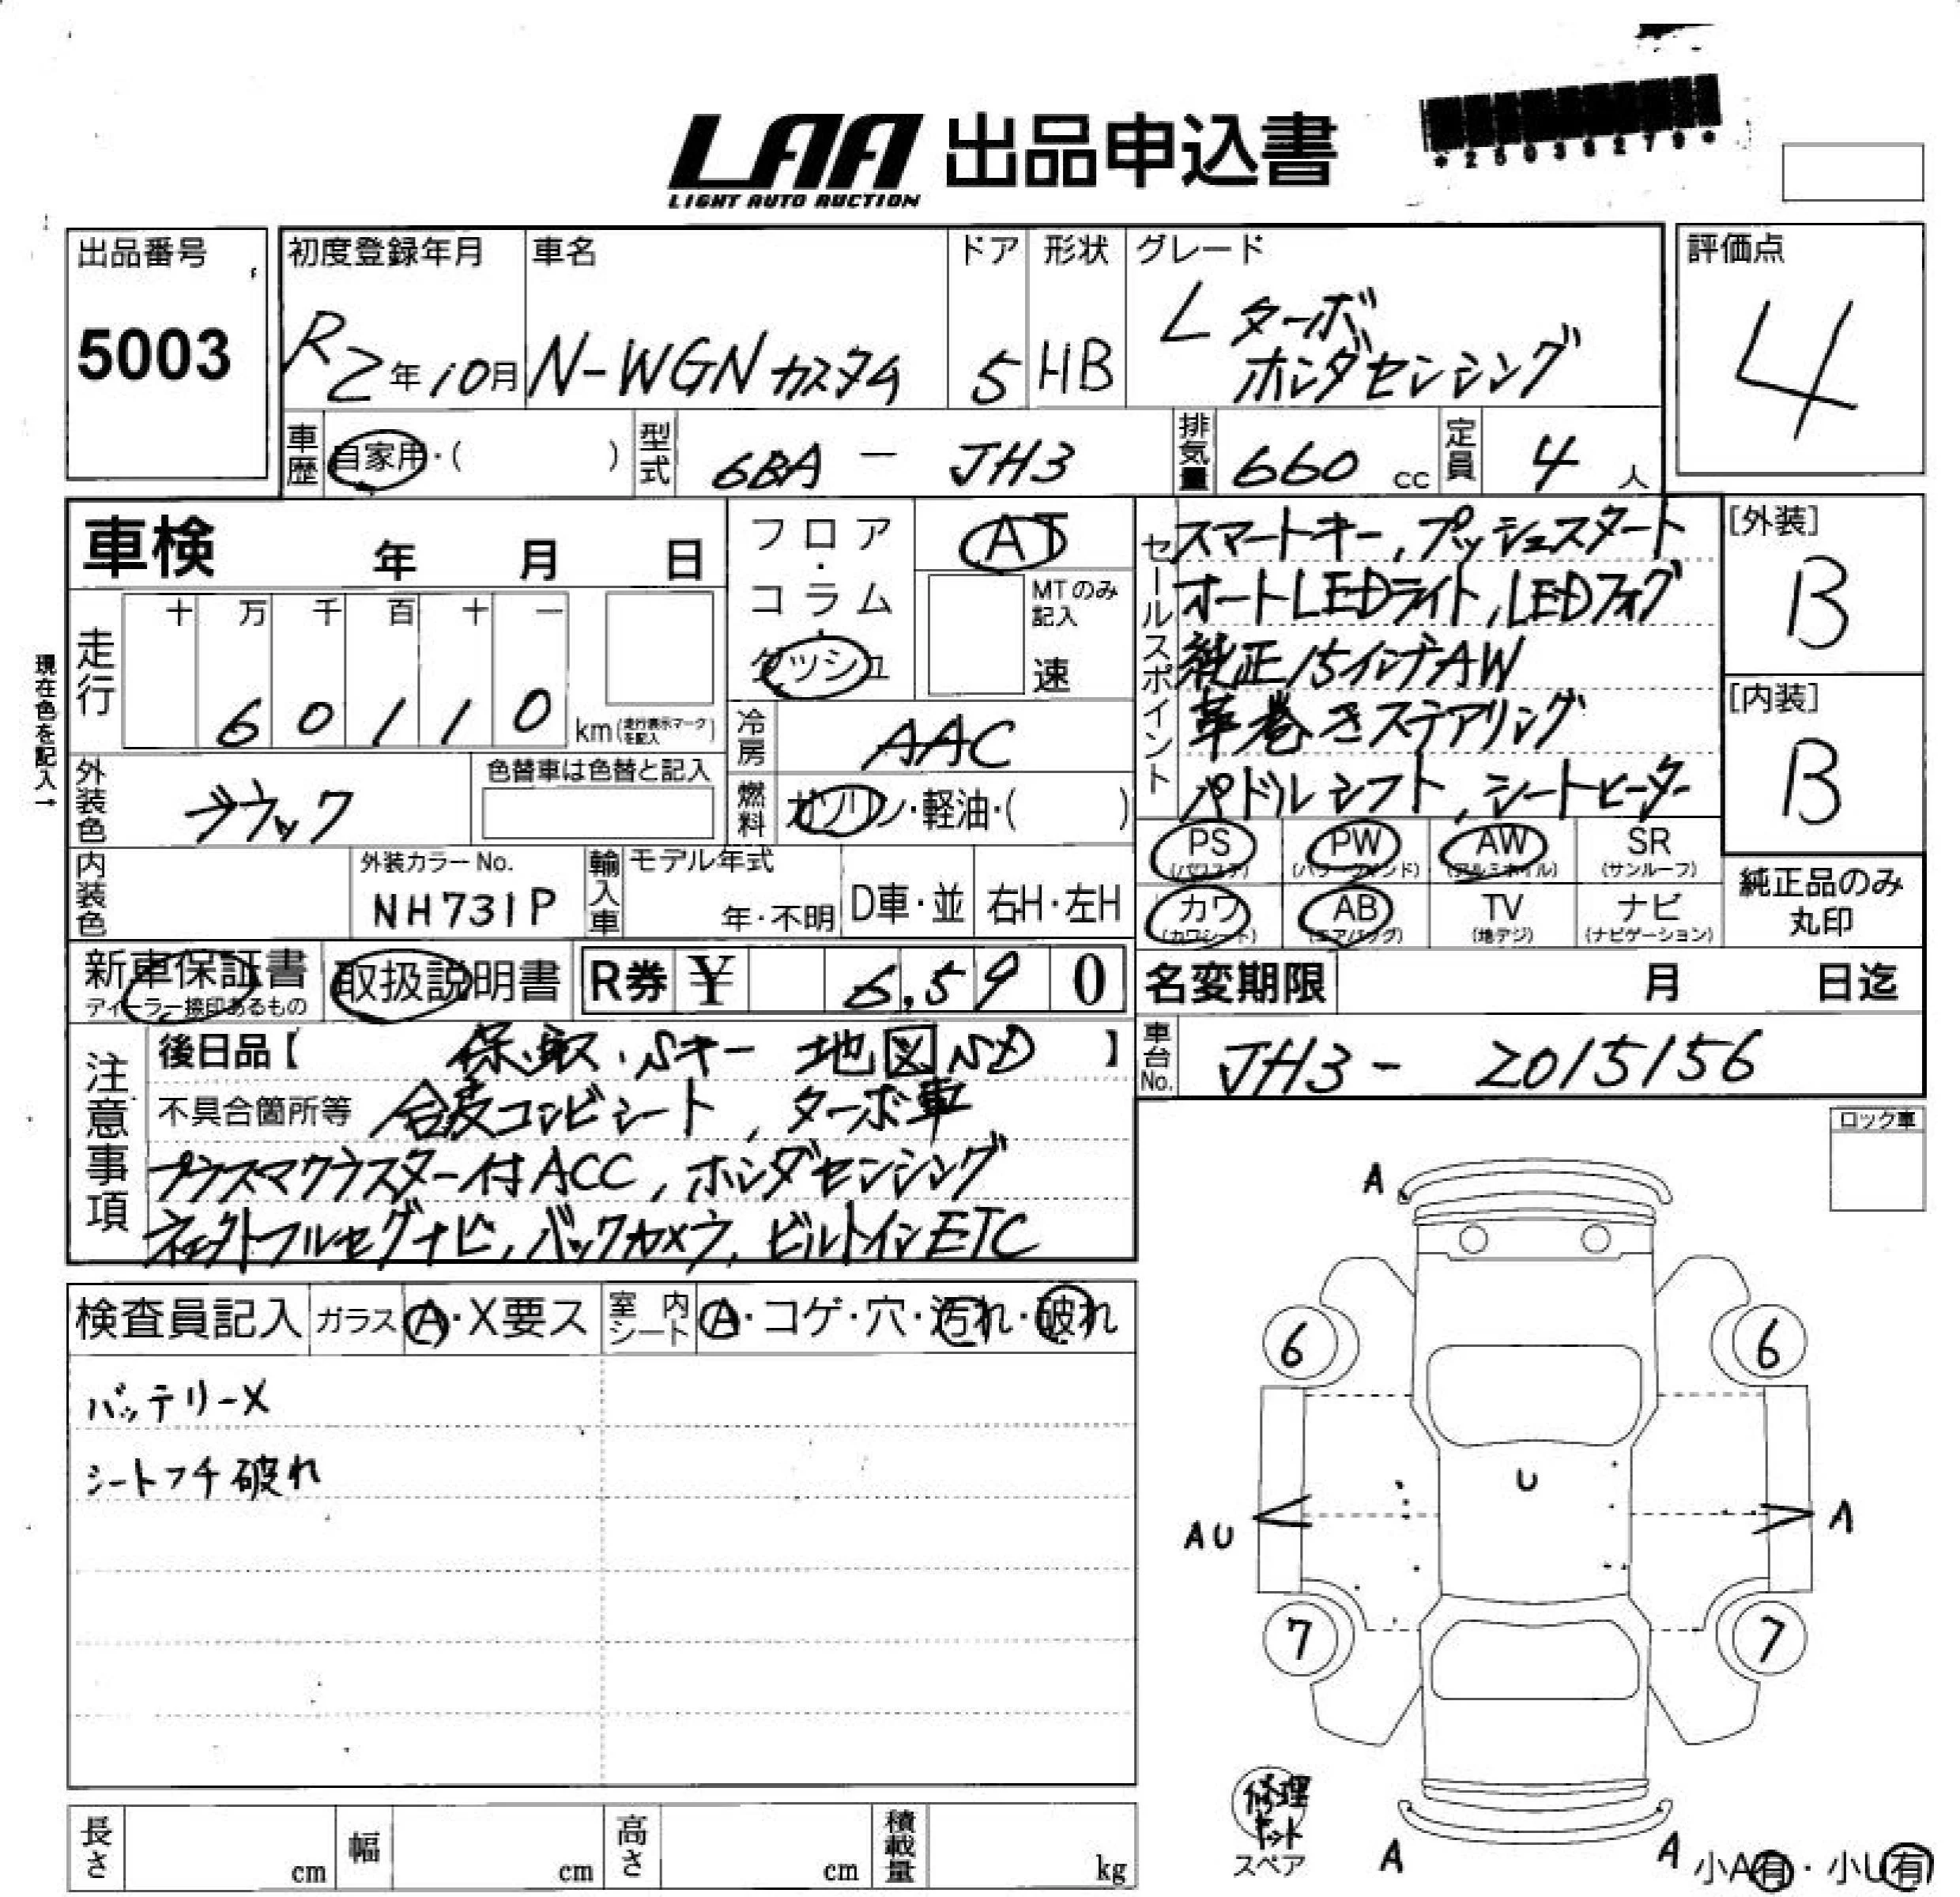 LAA 出品申込書
LIGHT AUTO AUCTION
*25036279*
出品番号
5003
初度登録年月
R2年10月
車名
N-WGN カスタム
ドア
5
形状
HB
グレード
L ターボ
ホンダセンシング
評価点
4
車歴
自家用・( )
型式
6BA - JH3
排気量
660 cc
定員
4 人
車検 年 月 日
フロア・コラム
ダッシュ
AT
MTのみ記入
速
セールスポイント
スマートキー, プッシュスタート
オートLEDライト, LEDフォグ
純正15インチAW
革巻きステアリング
パドルシフト, シートヒーター
[外装]
B
[内装]
B
現在色を記入→
走行
十 万 千 百 十 一
6 0 1 1 0
km(走行表示マークを記入)
冷房
AAC
外装色
ブラック
色替車は色替と記入
燃料
ガソリン・軽油・( )
内装色
外装カラーNo.
NH731P
輸入車
モデル年式
年・不明
D車・並
右H・左H
PS (パワステ)
PW (パワーウインド)
AW (アルミホイル)
SR (サンルーフ)
カワ (カワシート)
AB (エアバッグ)
TV (地デジ)
ナビ (ナビゲーション)
純正品のみ
丸印
新車保証書
ディーラー捺印あるもの
取扱説明書
R券 ¥ 6,59 0
名変期限 月 日迄
車台No.
JH3 - 2015156
注意事項
後日品【 保・取・Sキー 地図SD 】
不具合箇所等 合皮コンビシート, ターボ車
プラズマクラスター付ACC, ホンダセンシング
ネェクトフルセグナビ, バックカメラ, ビルトインETC
ロック車
検査員記入
ガラス A・X要ス
室内シート A・コゲ・穴・汚れ・破れ
バッテリーX
シートフチ破れ
A
6 6
U
AU
A
7 7
修理キット
スペア
A
A
小A有・小U有
長さ cm
幅 cm
高さ cm
積載量 kg